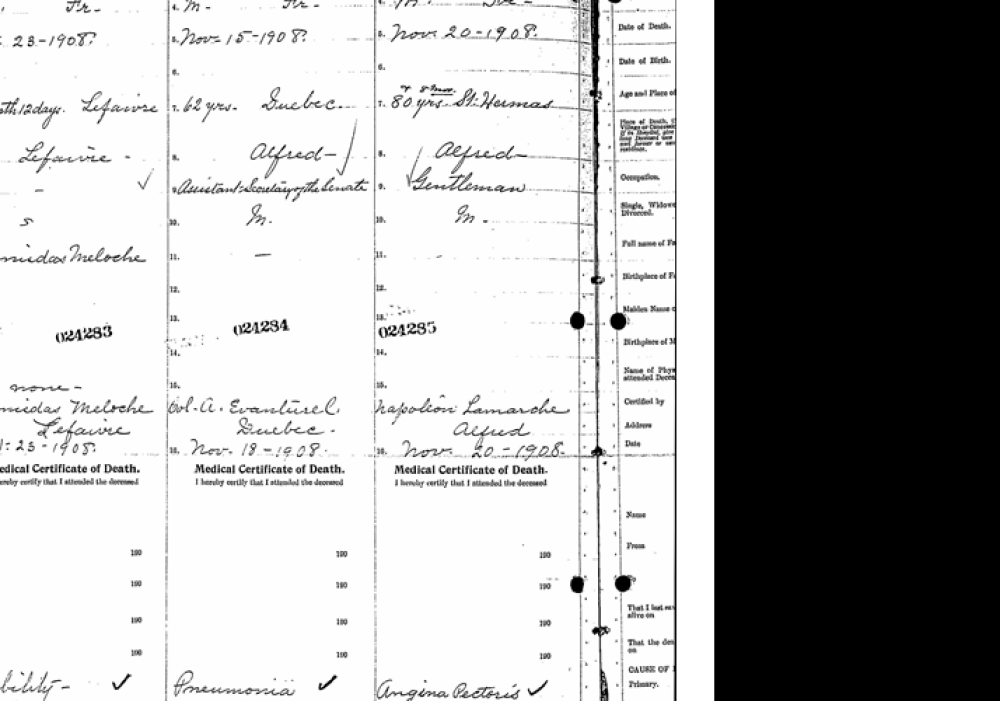 4. M. Fr.
23-1908.
th 12 days. Lefaivre
Lefaivre -
-
s
midas Meloche
024283
none-
midas Meloche
Lefaivre
23-1908.
edical Certificate of Death.
ereby certify that I attended the deceased
190
190
190
190
bility-
5. Nov. 15-1908.
6.
7. 62 yrs. Quebec.
8. Alfred-
9. Assistant-Secretary of the Senate
10. M.
11. —
12.
13.
024284
14.
15.
Col. A. Evanturel.
Quebec.
16. Nov. 18-1908.
Medical Certificate of Death.
I hereby certify that I attended the deceased
190
190
190
190
Pneumonia
5. Nov. 20-1908.
6.
7. 80 yrs. St. Hermas
8. Alfred-
9. Gentleman
10. M.
11.
12.
13.
024285
14.
15.
Napoléon Lamarche
Alfred
16. Nov. 20-1908.
Medical Certificate of Death.
I hereby certify that I attended the deceased
190
190
190
190
Angina Pectoris
Date of Death.
Date of Birth.
Age and Place o
Occupation.
Single, Widow
Divorced.
Full name of Fa
Birthplace of F
Maiden Name o
Birthplace of M
Name of Phys
attended Dece
Certified by
Address
Date
Name
From
To
That I last sa
alive on
That the de
on
CAUSE OF
Primary.